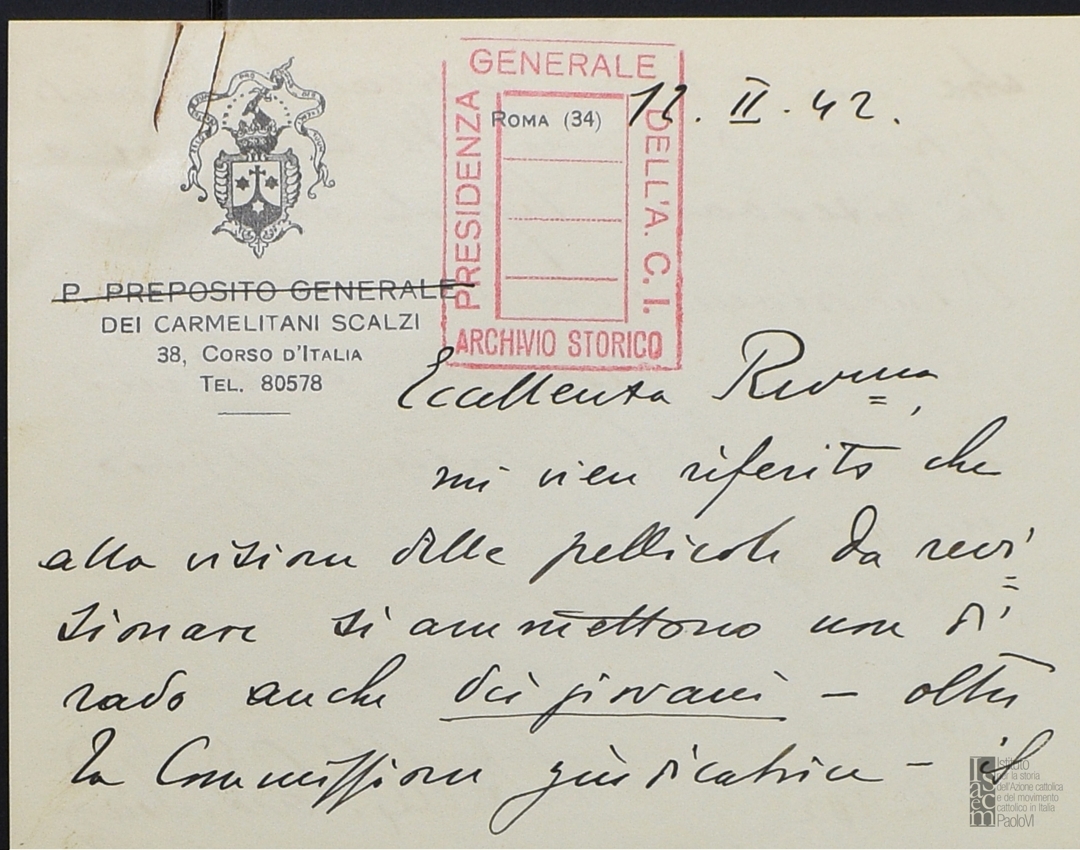 GENERALE
PRESIDENZA
DELL'A. C. I.
ARCHIVIO STORICO
ROMA (34) 12. II. 42.
P. PREPOSITO GENERALE
DEI CARMELITANI SCALZI
38, CORSO D'ITALIA
TEL. 80578
Eccellenza Rev.ma,
mi vien riferito che
alla visione delle pellicole da revi=
sionare si ammettono non di
rado anche dei giovani – oltre
la Commissione giudicatrice – il
Istituto
per la storia
dell'Azione cattolica
e del movimento
cattolico in Italia
PaoloVI
Isacem